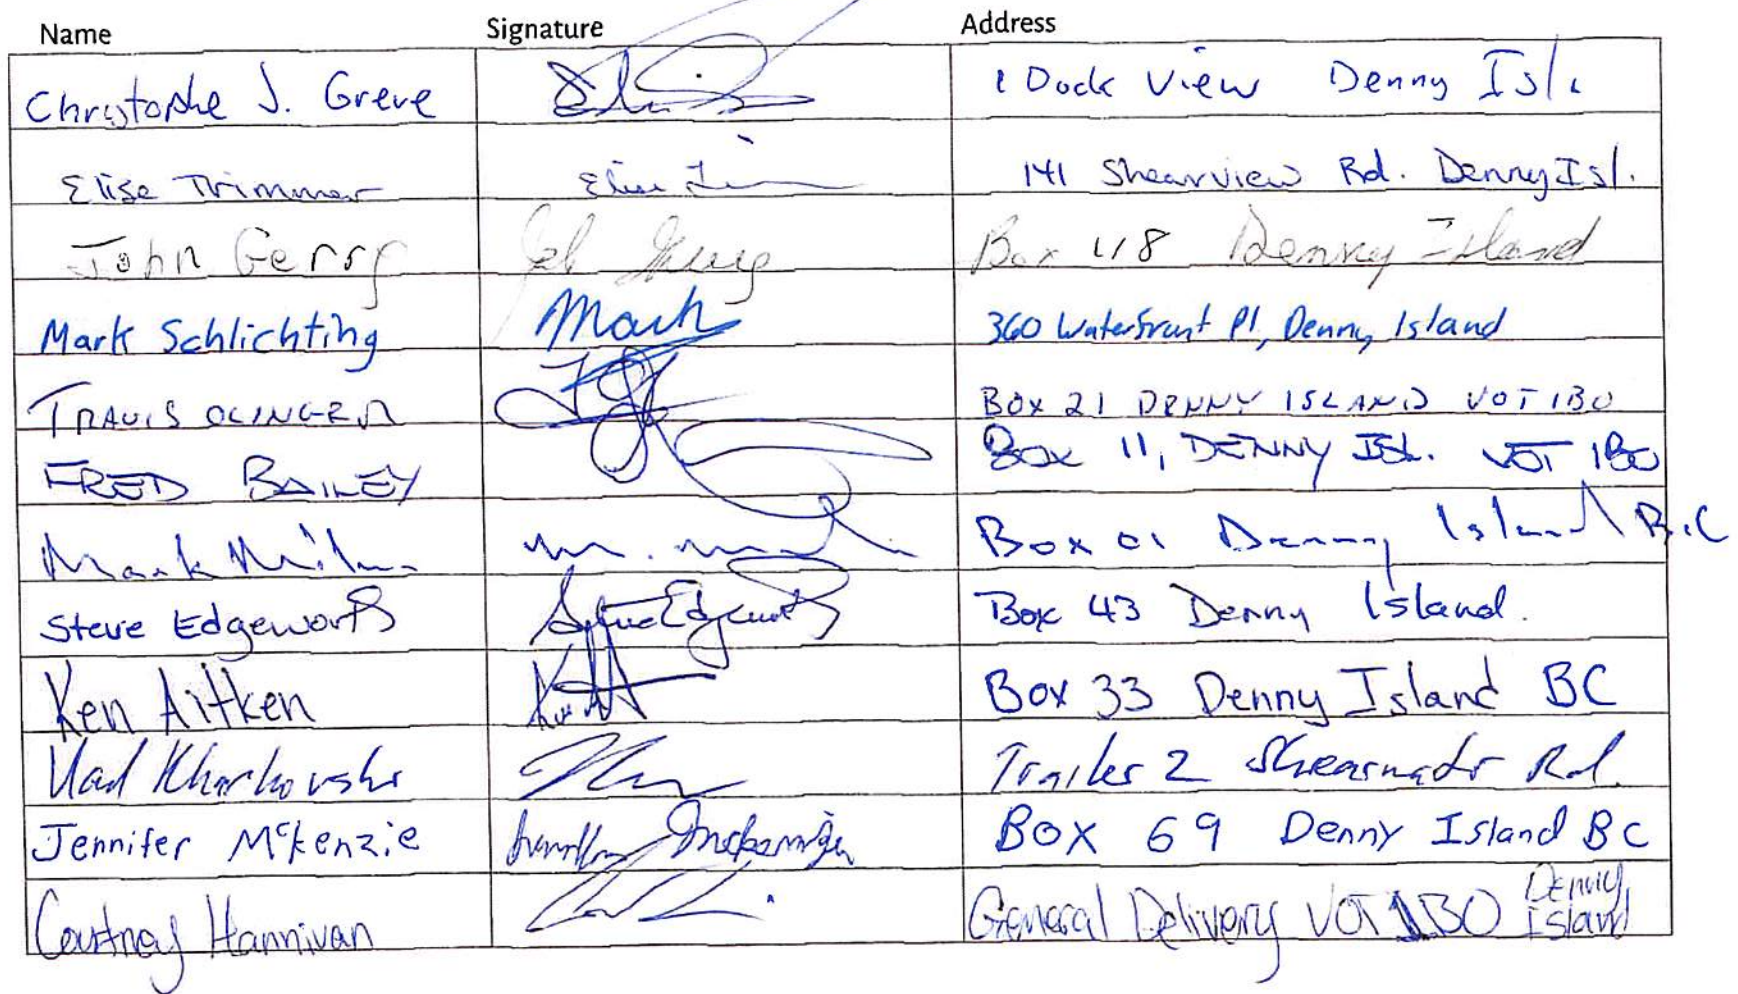 Name Signature Address
Christophe J. Greve 1 Dock View Denny Isl.
Elise Trimmer Elise 141 Shearview Rd. Denny Isl.
John Gerry Box 418 Denny Island
Mark Schlichting Mark 360 Waterfront Pl, Denny Island
TRAVIS OLINGER BOX 21 DENNY ISLAND V0T 1B0
FRED BAILEY BOX 11, DENNY ISL. V0T 1B0
Mark Box 01 Denny Island B.C
Steve Edgeworth Steve Edgeworth Box 43 Denny Island.
Ken Aitken Box 33 Denny Island BC
Vlad Kharkovski Trailer 2 Rd.
Jennifer McKenzie Jennifer McKenzie BOX 69 Denny Island BC
Courtney Hannivan General Delivery V0T 1B0 Denny Island